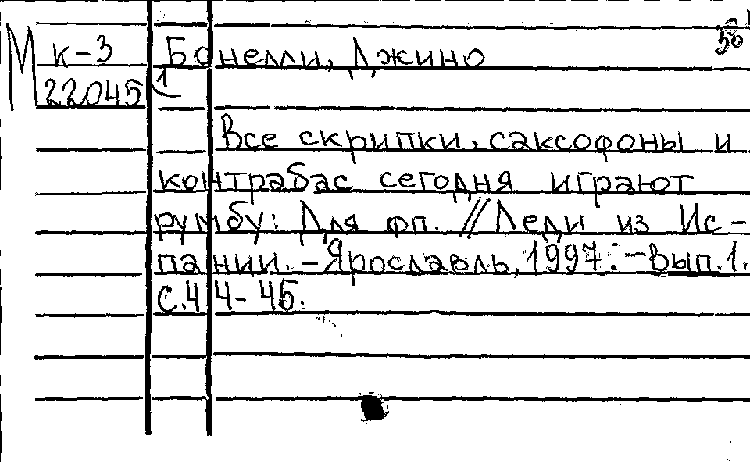 М к-3 Бонелли, Джино 50
22045 1
Все скрипки, саксофоны и
контрабас сегодня играют
румбу: Для фп. // Леди из Ис-
пании. - Ярославль, 1997. - Вып. 1.
С. 44-45.